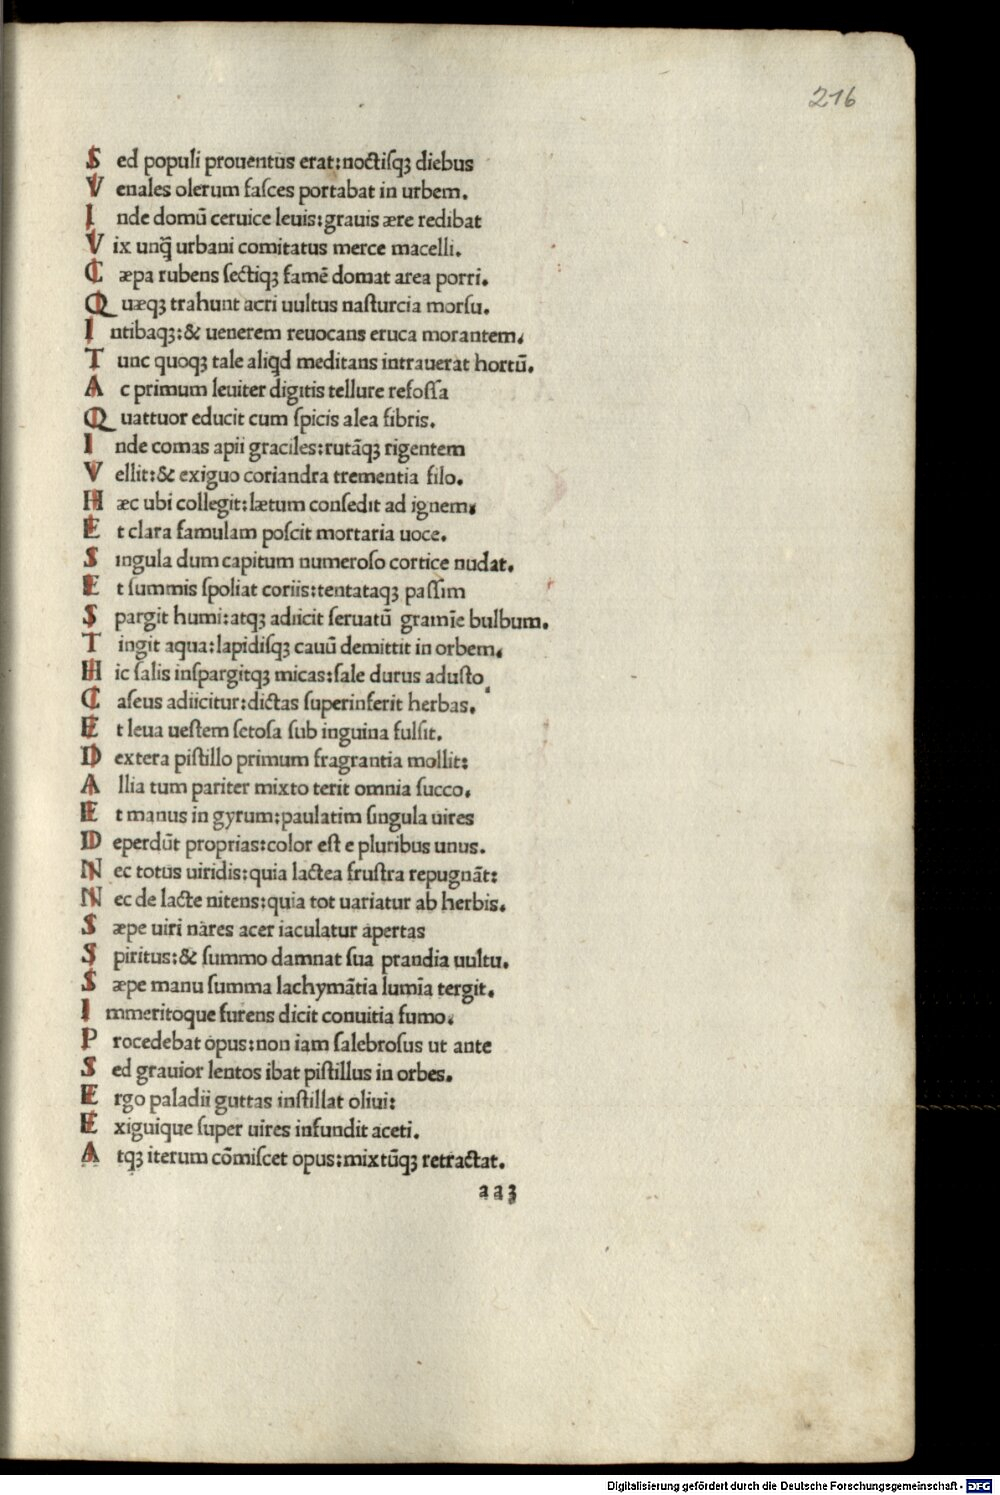 216
Sed populi prouentus erat:noctiſqꝫ diebus
Venales olerum faſces portabat in urbem.
Inde domū ceruice leuis:grauis ære redibat
Vix unq̄ urbani comitatus merce macelli.
Cæpa rubens ſectiqꝫ famē domat area porri.
Quæqꝫ trahunt acri uultus naſturcia morſu.
Intibaqꝫ:& uenerem reuocans eruca morantem.
Tunc quoqꝫ tale aliqd meditans intrauerat hortū.
Ac primum leuiter digitis tellure refoſſa
Quattuor educit cum ſpicis alea fibris.
Inde comas apii graciles:rutāqꝫ rigentem
Vellit:& exiguo coriandra trementia filo.
Hæc ubi collegit:lætum conſedit ad ignem.
Et clara famulam poſcit mortaria uoce.
Singula dum capitum numeroſo cortice nudat.
Et ſummis ſpoliat coriis:tentataqꝫ paſſim
Spargit humi:atqꝫ adiicit ſeruatū gramīe bulbum.
Tingit aqua:lapidiſqꝫ cauū demittit in orbem.
Hic ſalis inſpargitqꝫ micas:ſale durus aduſto.
Caſeus adiicitur:dictas ſuperinferit herbas.
Et leua ueſtem ſetoſa ſub inguina fulſit.
Dextera piſtillo primum fragrantia mollit:
Allia tum pariter mixto terit omnia ſucco.
Et manus in gyrum:paulatim ſingula uires
Deperdūt proprias:color eſt e pluribus unus.
Nec totus uiridis:quia lactea fruſtra repugnāt:
Nec de lacte nitens:quia tot uariatur ab herbis.
Sæpe uiri nares acer iaculatur apertas
Spiritus:& ſummo damnat ſua prandia uultu.
Sæpe manu ſumma lachymātia lumīa tergit.
Immeritoque furens dicit conuitia fumo.
Procedebat opus:non iam ſalebroſus ut ante
Sed grauior lentos ibat piſtillus in orbes.
Ergo paladii guttas inſtillat oliui:
Exiguique ſuper uires infundit aceti.
Atqꝫ iterum cōmiſcet opus:mixtūqꝫ retractat.
aa3
Digitalisierung gefördert durch die Deutsche Forschungsgemeinschaft - DFG